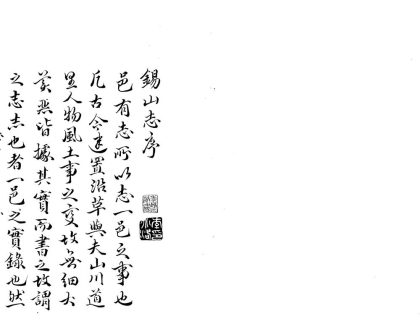 錫山志序
邑有志所以志一邑之事也
凡古今建置沿革與夫山川道
里人物風土事之變故無細大
莫不皆據其實而書之故謂
之志志也者一邑之實錄也然